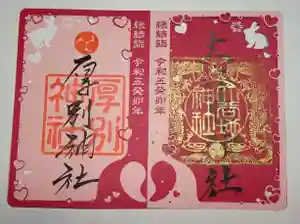 縁結詣 令和五癸卯年
厚別神社
厚別
神社
縁結詣 令和五癸卯年
神社
社